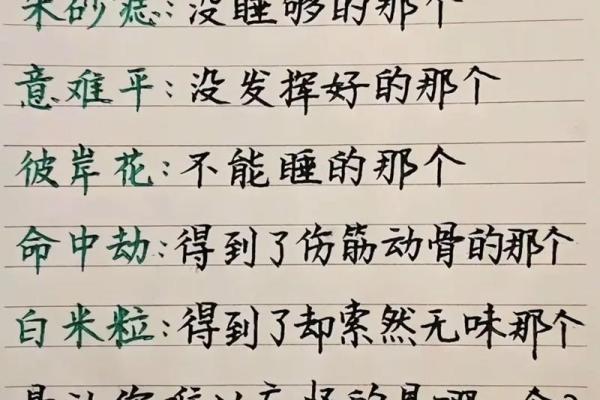 朱砂痣:没睡够的那个
意难平:没发挥好的那个
彼岸花:不能睡的那个
命中劫:得到了伤筋动骨的那个
白米粒:得到了却索然无味那个